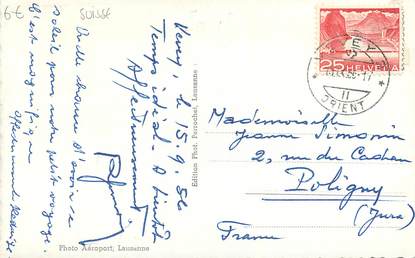 6€
SUISSE
Vevey, le 15.9.56
Temps idéal. A bientôt
Affectueusement
Quelle chance d'avoir ce
soleil pour notre petit voyage.
C'est magnifique
Photo Aéroport, Lausanne
Edition Phot. Perrochet, Lausanne
25 HELVETIA
VEVEY
ORIENT
11
Mademoiselle
Jeanne Simonin
2, rue du Cadran
Poligny
(Jura)
France